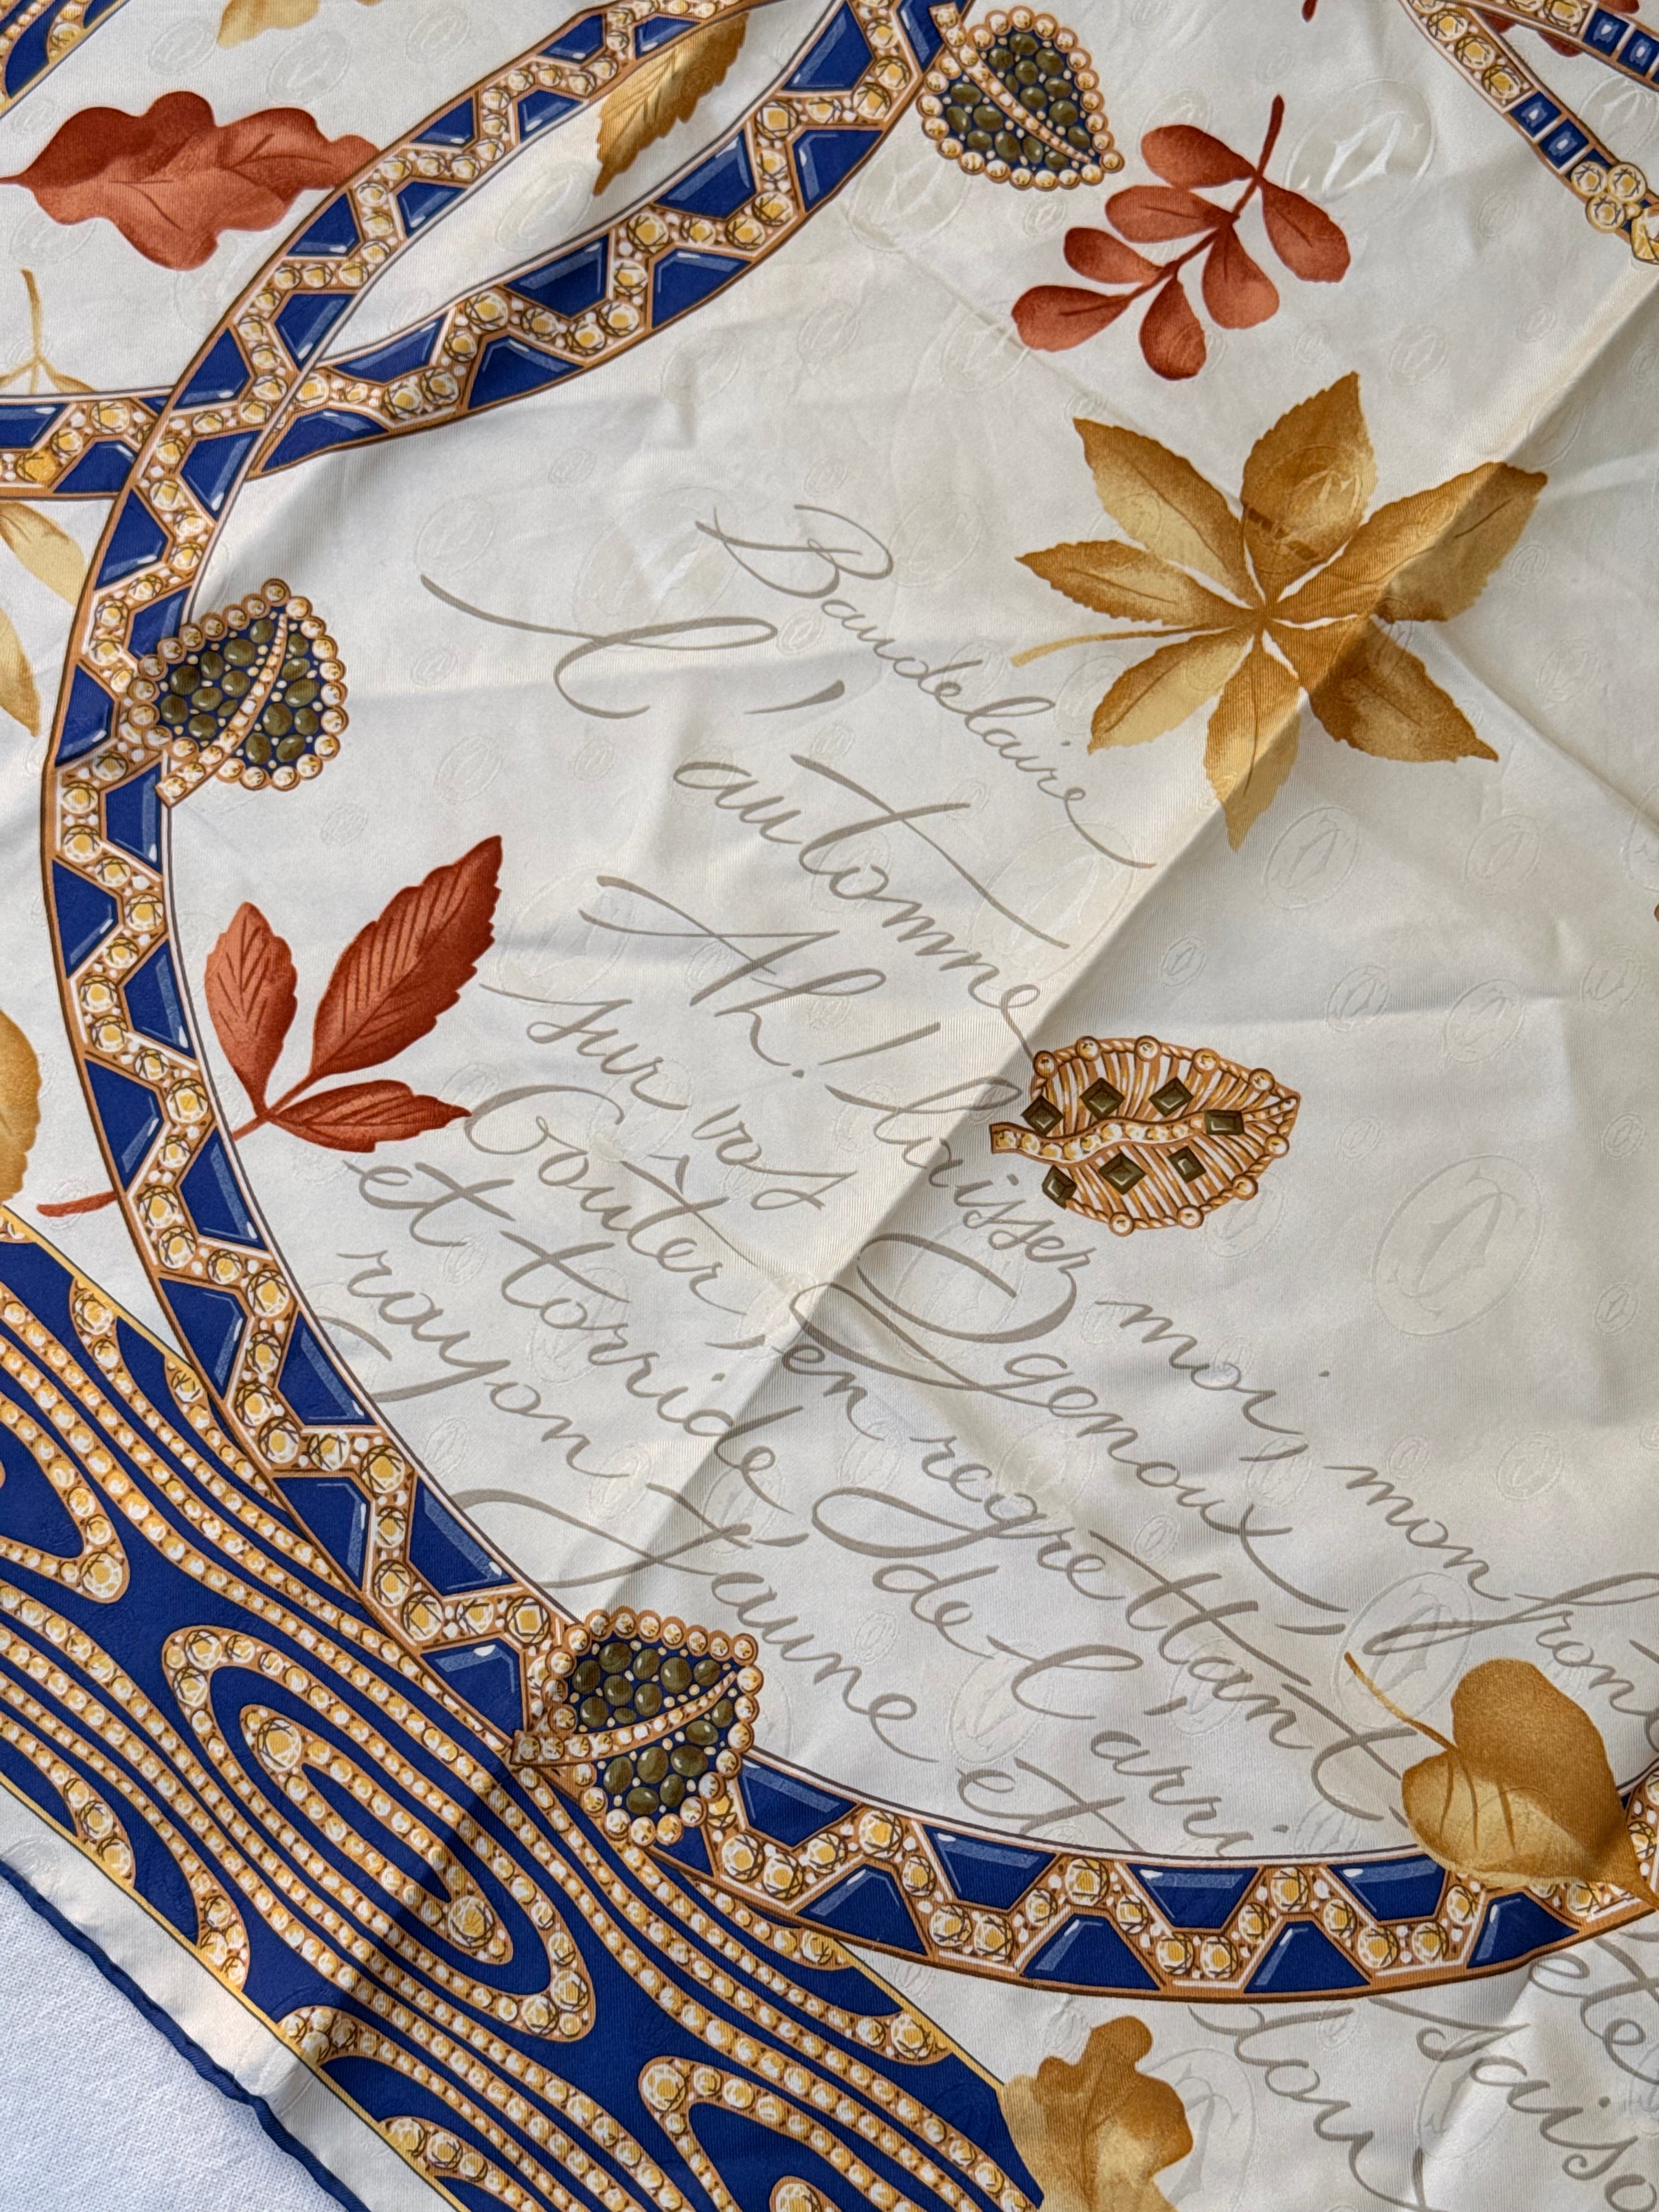 Baudelaire
L'
automne
Ah! laissez moi, mon fron
sur vos Genoux,
Goûter, en regrettant
et torride de l'arri saiso
rayon Jaune et dou